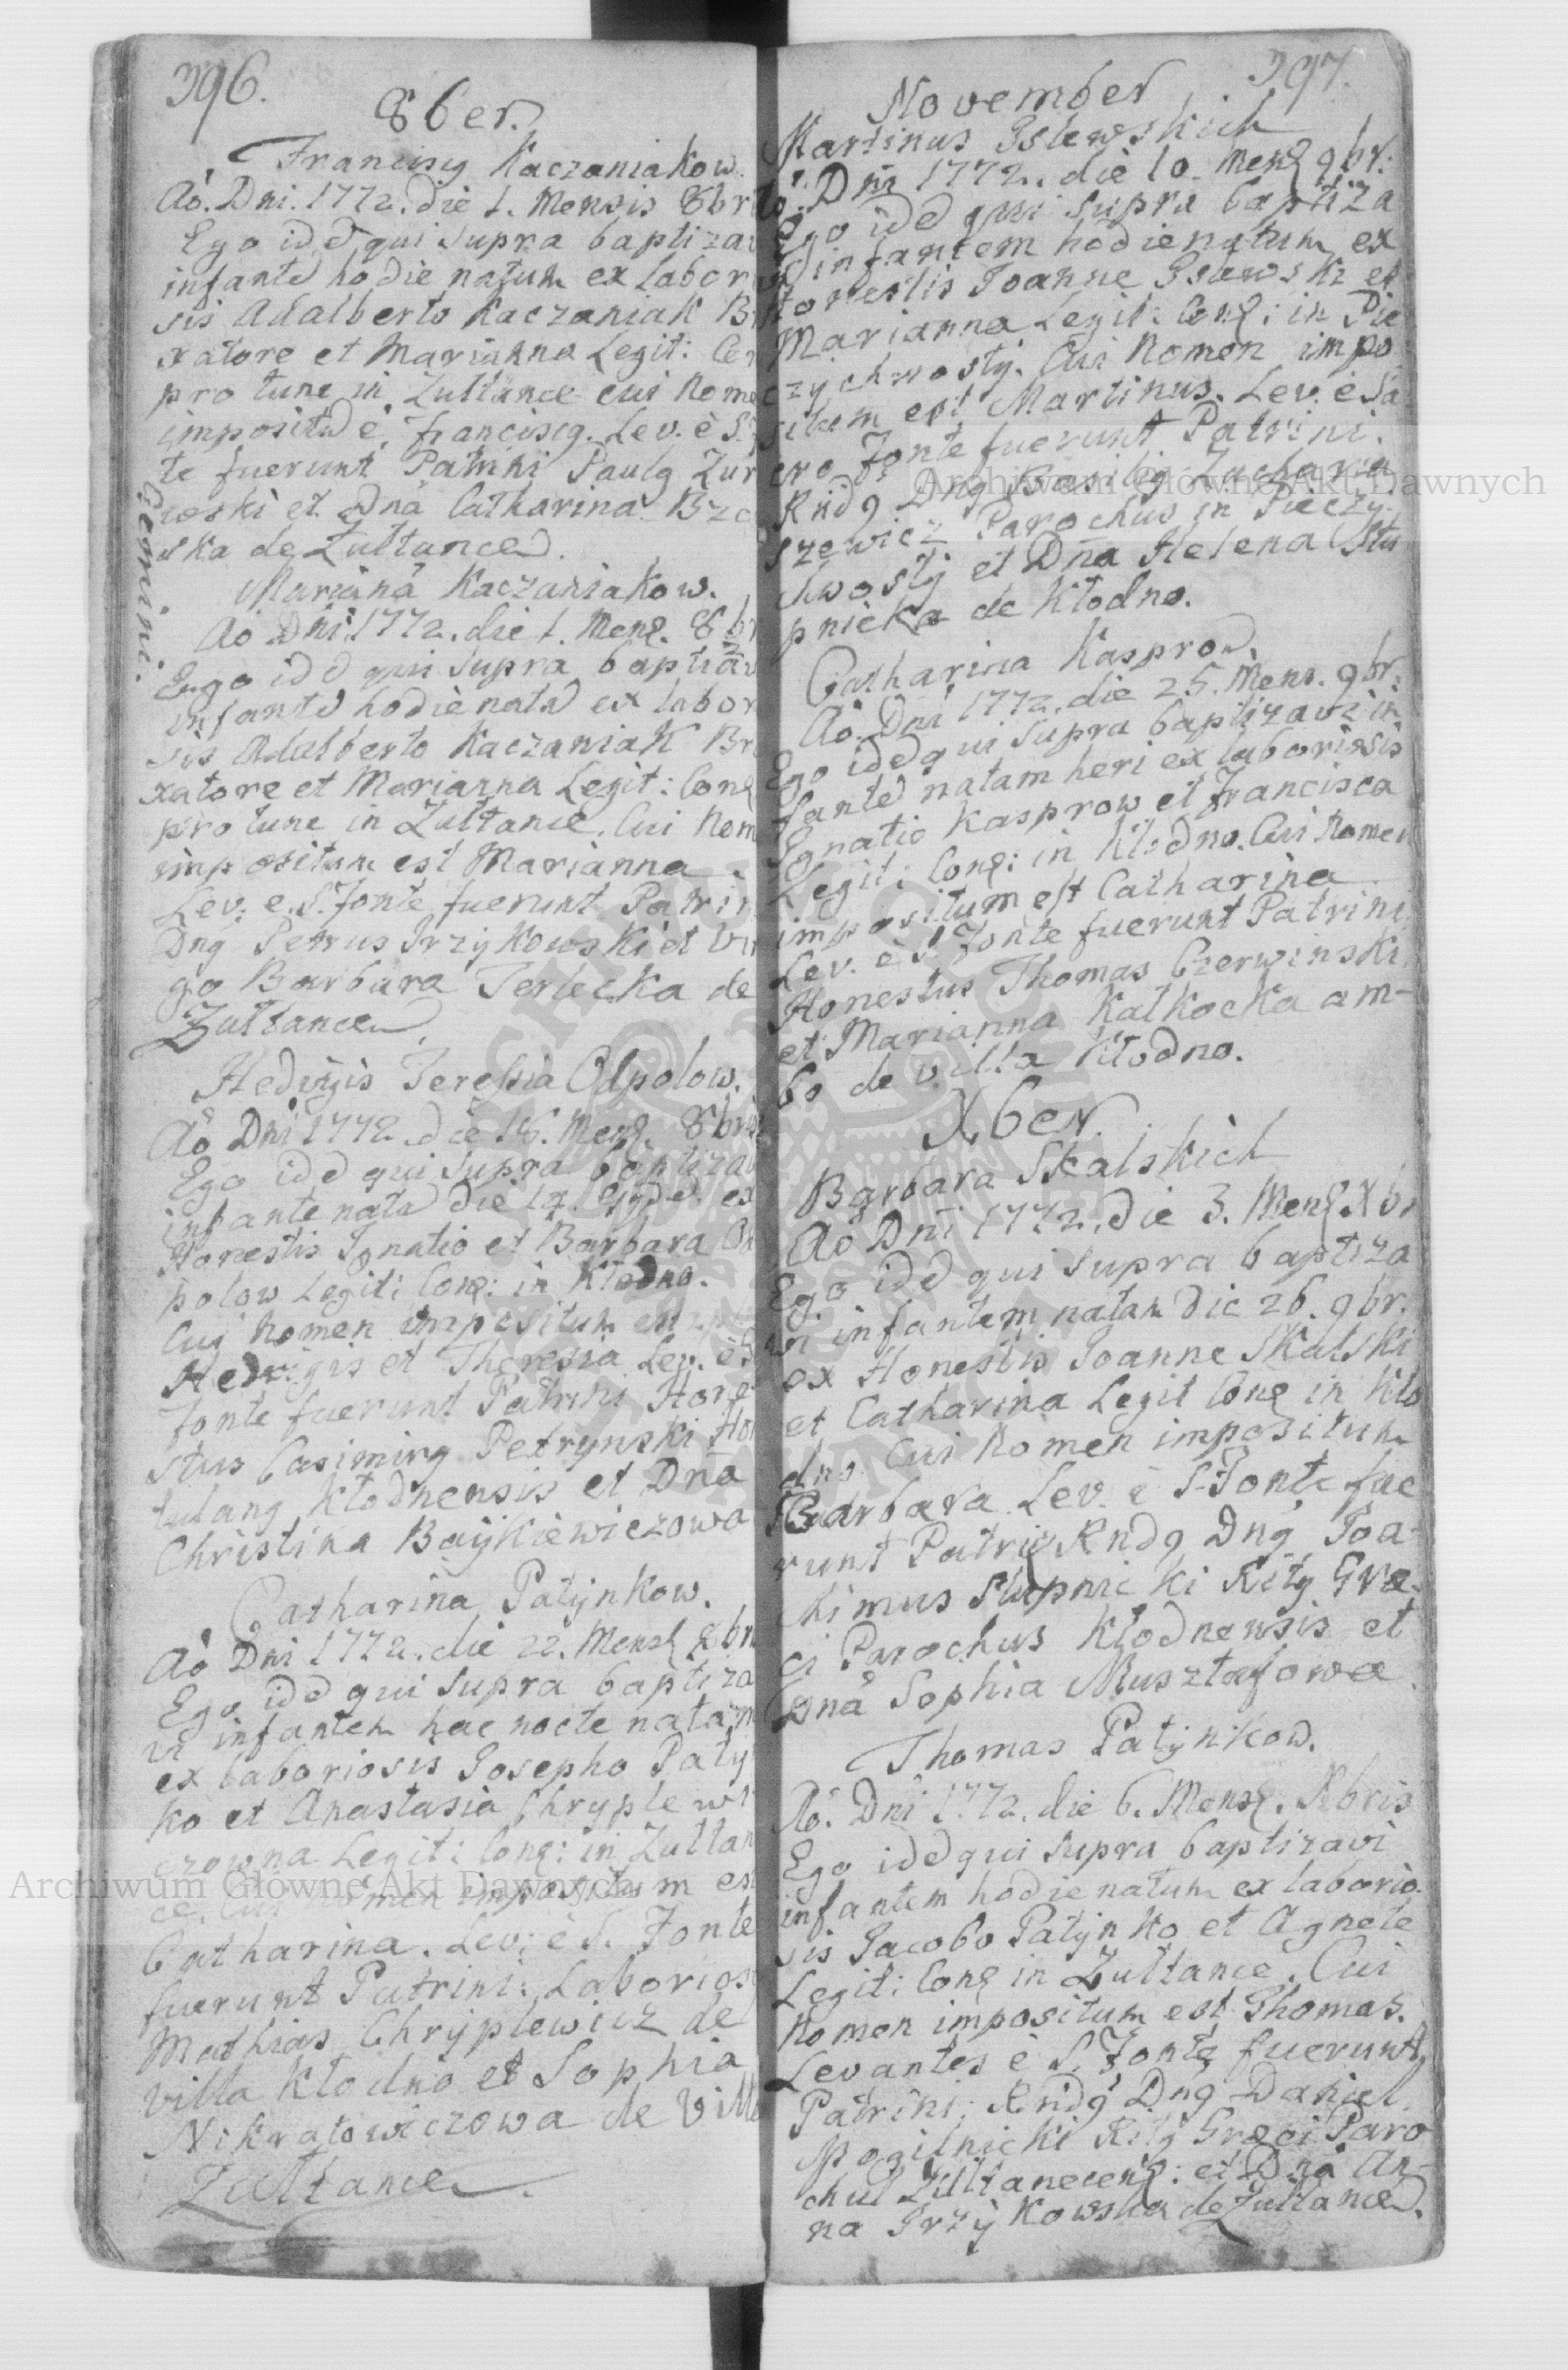 396.
8ber.
Franciscg Kaczaniakow.
Aó. Dni. 1772. die 1. Mensis 8br
Ego idē qui supra baptizav
infantē hodie natum ex labor
sis Adalberto Kaczaniak Br
xatore et Marianna Legit: Con
pro tunc in Zułtance cui Nome
impositū ē, franciscg. Lev. è S.
te fuerunt Patrini Paulg Zur
woski et Dnā Catharina Brze
ska de Zułtance.
Gemini.
Mariana Kaczaniakow.
Aó Dni. 1772. die 1. Mens. 8br
Ego idē qui supra baptizav
infantē hodiè natā ex labor
sis Adalberto Kaczaniak Br
xatore et Marianna Legit: Cons
pro tunc in Zułtance. Cui Nom
impositum est Marianna.
Lev. e. S. fonte fuerunt Patrin
Dng Petrus Irzykowski et Vir
go Barbara Terlecka de
Zułtance
Hedvigis Teressia Opolow.
Aó Dni 1772. die 16. Mens. 8bris
Ego idē qui supra baptizav
infante natā die 14. ex
Honestis Ignatio et Barbara O
polow Legit: Cons: in Kłodno.
Cug Nomen impositum est
Hedvigis et Theresia Lev. è S
fonte fuerunt Patrini Hone
stus Casimirg Petrynski
tulang Kłodnensis et Dnā
Christina Baykiewiczowa
Catharina Patynkow.
Aò Dni 1772. die 22. Mens 8br
Ego idē qui supra baptiza
vi infantem hac nocte natam
ex laboriosis Josepho Paty
ko et Anastasia Chryplewi
czowna Legit: Cons: in Zułtan
ce. Cui Nomen impositum est
Catharina. Lev: è S. fonte
fuerunt Patrini: Laborios
Mathias Chryplewicz de
villa Kłodno et Sophia
Nikratowiczowa de Villa
Zułtance.
397.
November
Martinus Islewskich
Aó. Dni 1772. die 10. Mens 9br:
Ego idē qui supra baptiza
vi infantem hodie natum ex
Honestis Joanne Islewski et
Marianna Legit: Cons: in Pie
czychwosty. Cui Nomen impo
situm est Martinus. Lev. è Sa
cro fonte fuerunt Patrini.
Rndg Dng Basilig Zacharia
szewicz Parochus in Pieczy
chwosty et Dna Helena Stu
pnicka de Kłodno.
Catharina Kasprow.
Aó. Dni 1772. die 25. Mens. 9br.
Ego idē qui supra baptizavi in
fantē natam heri ex laboriosis
Ignatio Kasprow et Francisca
Legit: Cons: in Kłodno. Cui Nomen
impositum est Catharina
Lev. è S. fonte fuerunt Patrini
Honestus Thomas Czerwinski
et Marianna Kałkocka am-
bo de villa Kłodno.
Xber.
Barbara Skalskich
Aó Dni 1772. die 3. Mens Xbr
Ego idē qui supra baptiza
vi infantem natam die 26. 9br.
ex Honestis Joanne Skalski
et Catharina Legit Cons in Kło
dno Cui Nomen impositum
Barbara. Lev. è S. fonte fue
runt Patri Rndg Dng Joa
chimus Stupnicki Ritg Græ
ci Parochus Kłodnensis et
Dnā Sophia Musztafowa.
Thomas Patynkow.
Aó. Dni 1772. die 6. Mens. Xbris
Ego idē qui supra baptizavi
infantem hodie natum ex laborio
sis Jacobo Patynko et Agnete
Legit: Cons in Zułtance. Cui
Nomen impositum est Thomas.
Levantes è S. fonte fuerunt
Patrini: Rndg Dng Daniel
Mogilnicki Ritg Græci Paro
chus Zułtanecens: et Dnā An-
na Irzykowska de Zułtance.
Archiwum Główne Akt Dawnych
Archiwum Główne Akt Dawnych